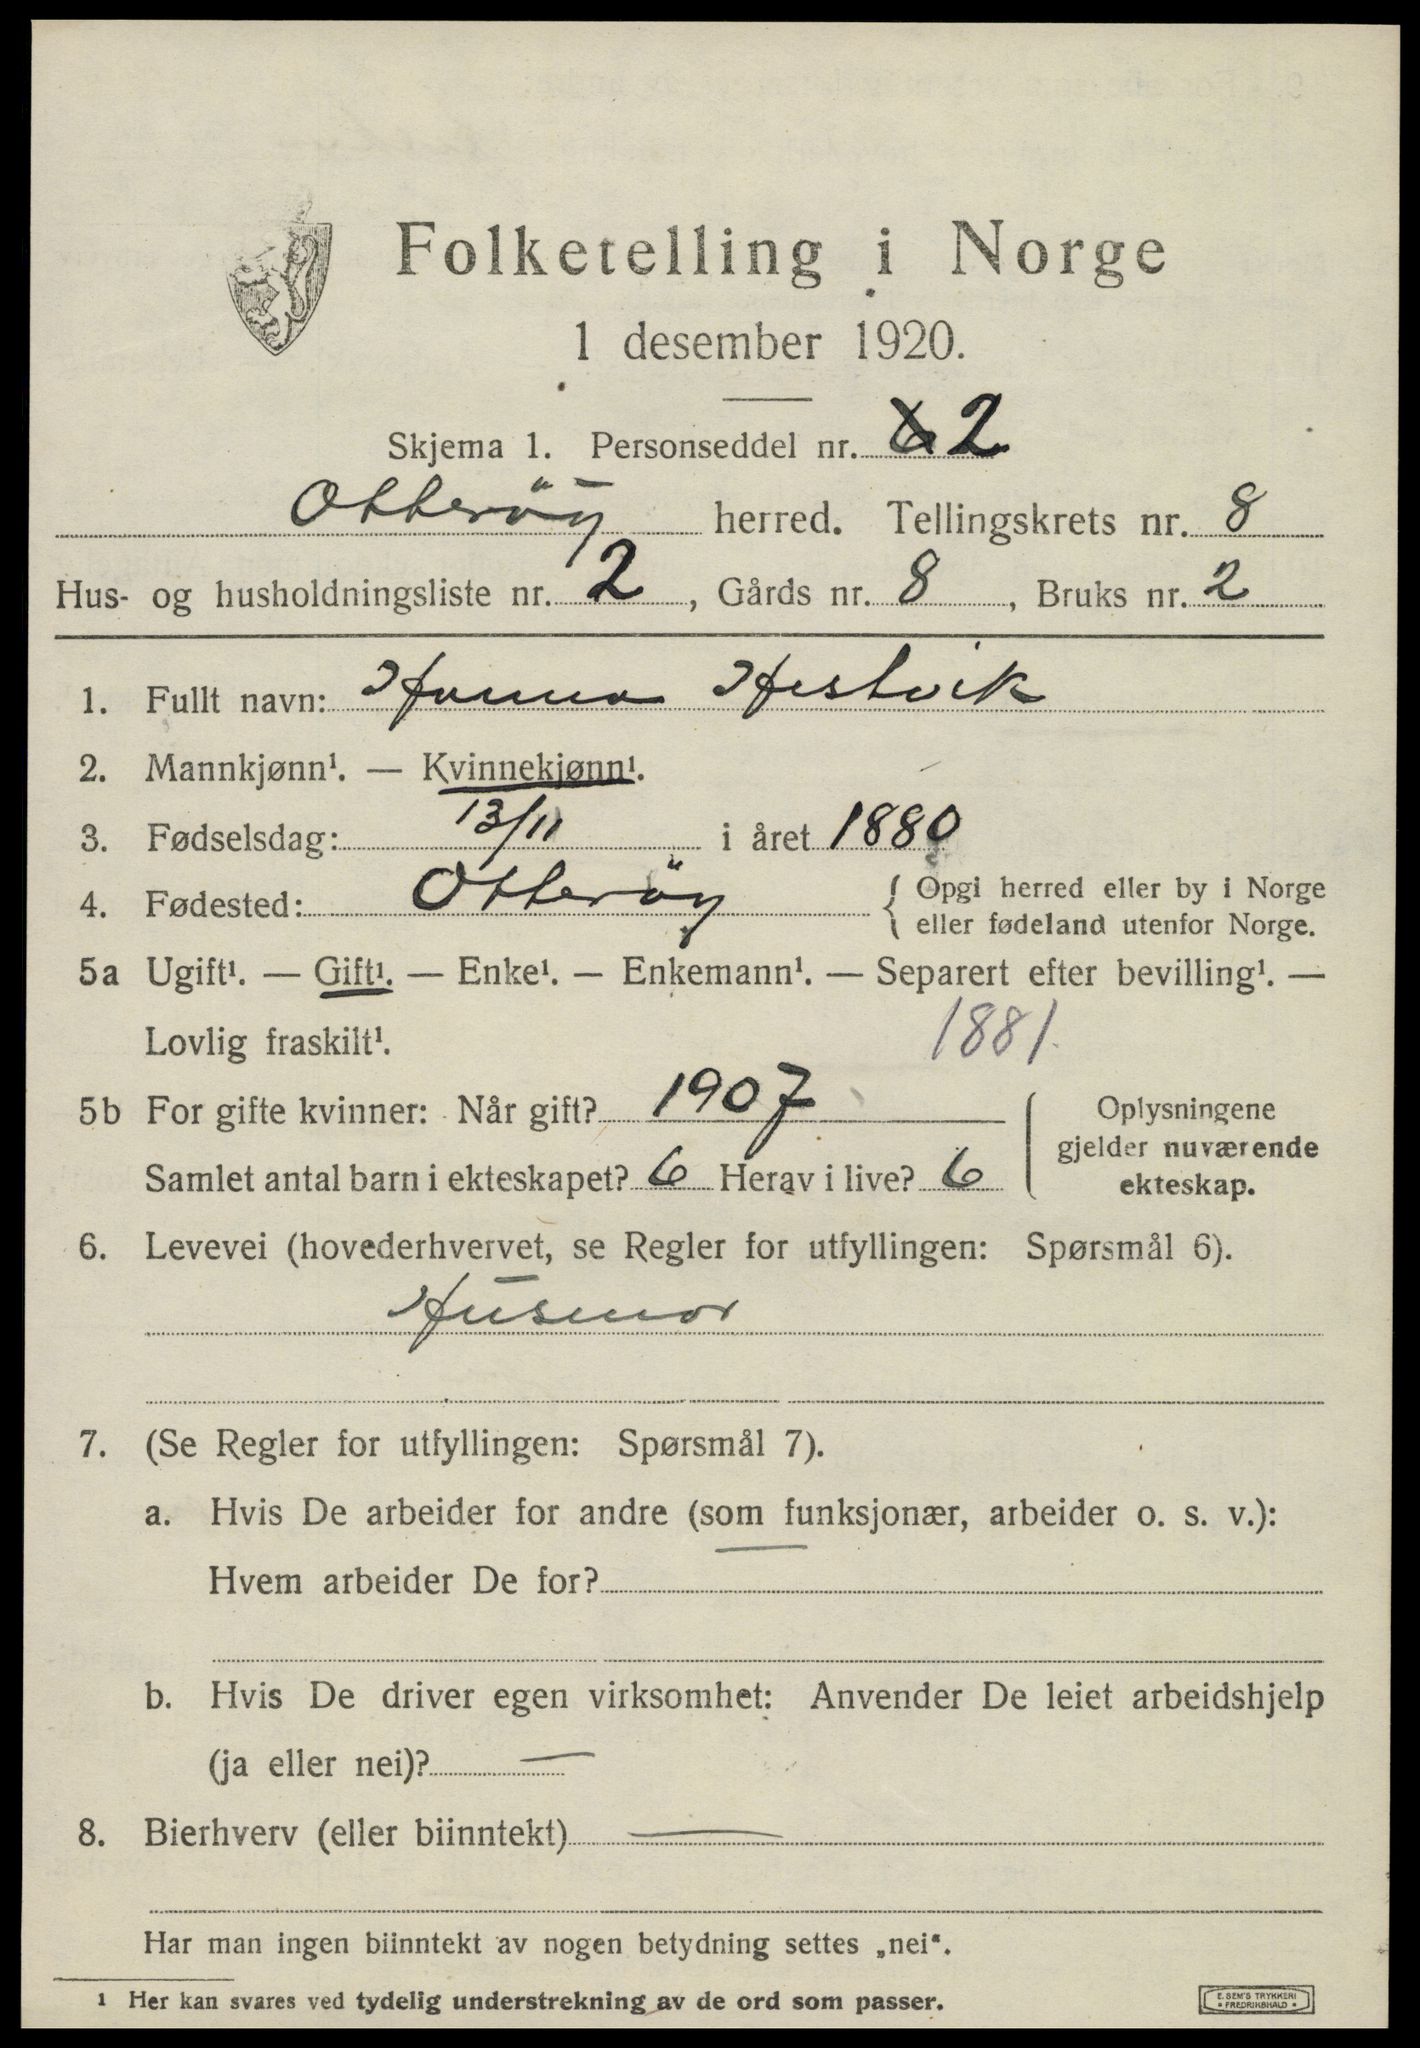 Folketelling i Norge
1 desember 1920.
Skjema 1. Personseddel nr. 6 2
Otterøy herred. Tellingskrets nr. 8
Hus- og husholdningsliste nr. 2, Gårds nr. 8, Bruks nr. 2
1. Fullt navn: Hanna Hestvik
2. Mannkjønn¹. — Kvinnekjønn¹.
3. Fødselsdag: 13/11 i året 1880
4. Fødested: Otterøy { Opgi herred eller by i Norge
eller fødeland utenfor Norge.
5a Ugift¹. — Gift¹. — Enke¹. — Enkemann¹. — Separert efter bevilling¹. —
Lovlig fraskilt¹. 1881.
5b For gifte kvinner: Når gift? 1907
Samlet antal barn i ekteskapet? 6 Herav i live? 6
Oplysningene
gjelder nuværende
ekteskap.
6. Levevei (hovederhvervet, se Regler for utfyllingen: Spørsmål 6).
Husmor
7. (Se Regler for utfyllingen: Spørsmål 7).
a. Hvis De arbeider for andre (som funksjonær, arbeider o. s. v.):
Hvem arbeider De for? —
b. Hvis De driver egen virksomhet: Anvender De leiet arbeidshjelp
(ja eller nei)? —
8. Bierhverv (eller biinntekt) —
Har man ingen biinntekt av nogen betydning settes „nei“.
¹ Her kan svares ved tydelig understrekning av de ord som passer.
E. SEM'S TRYKKERI
• FREDRIKSHALD •